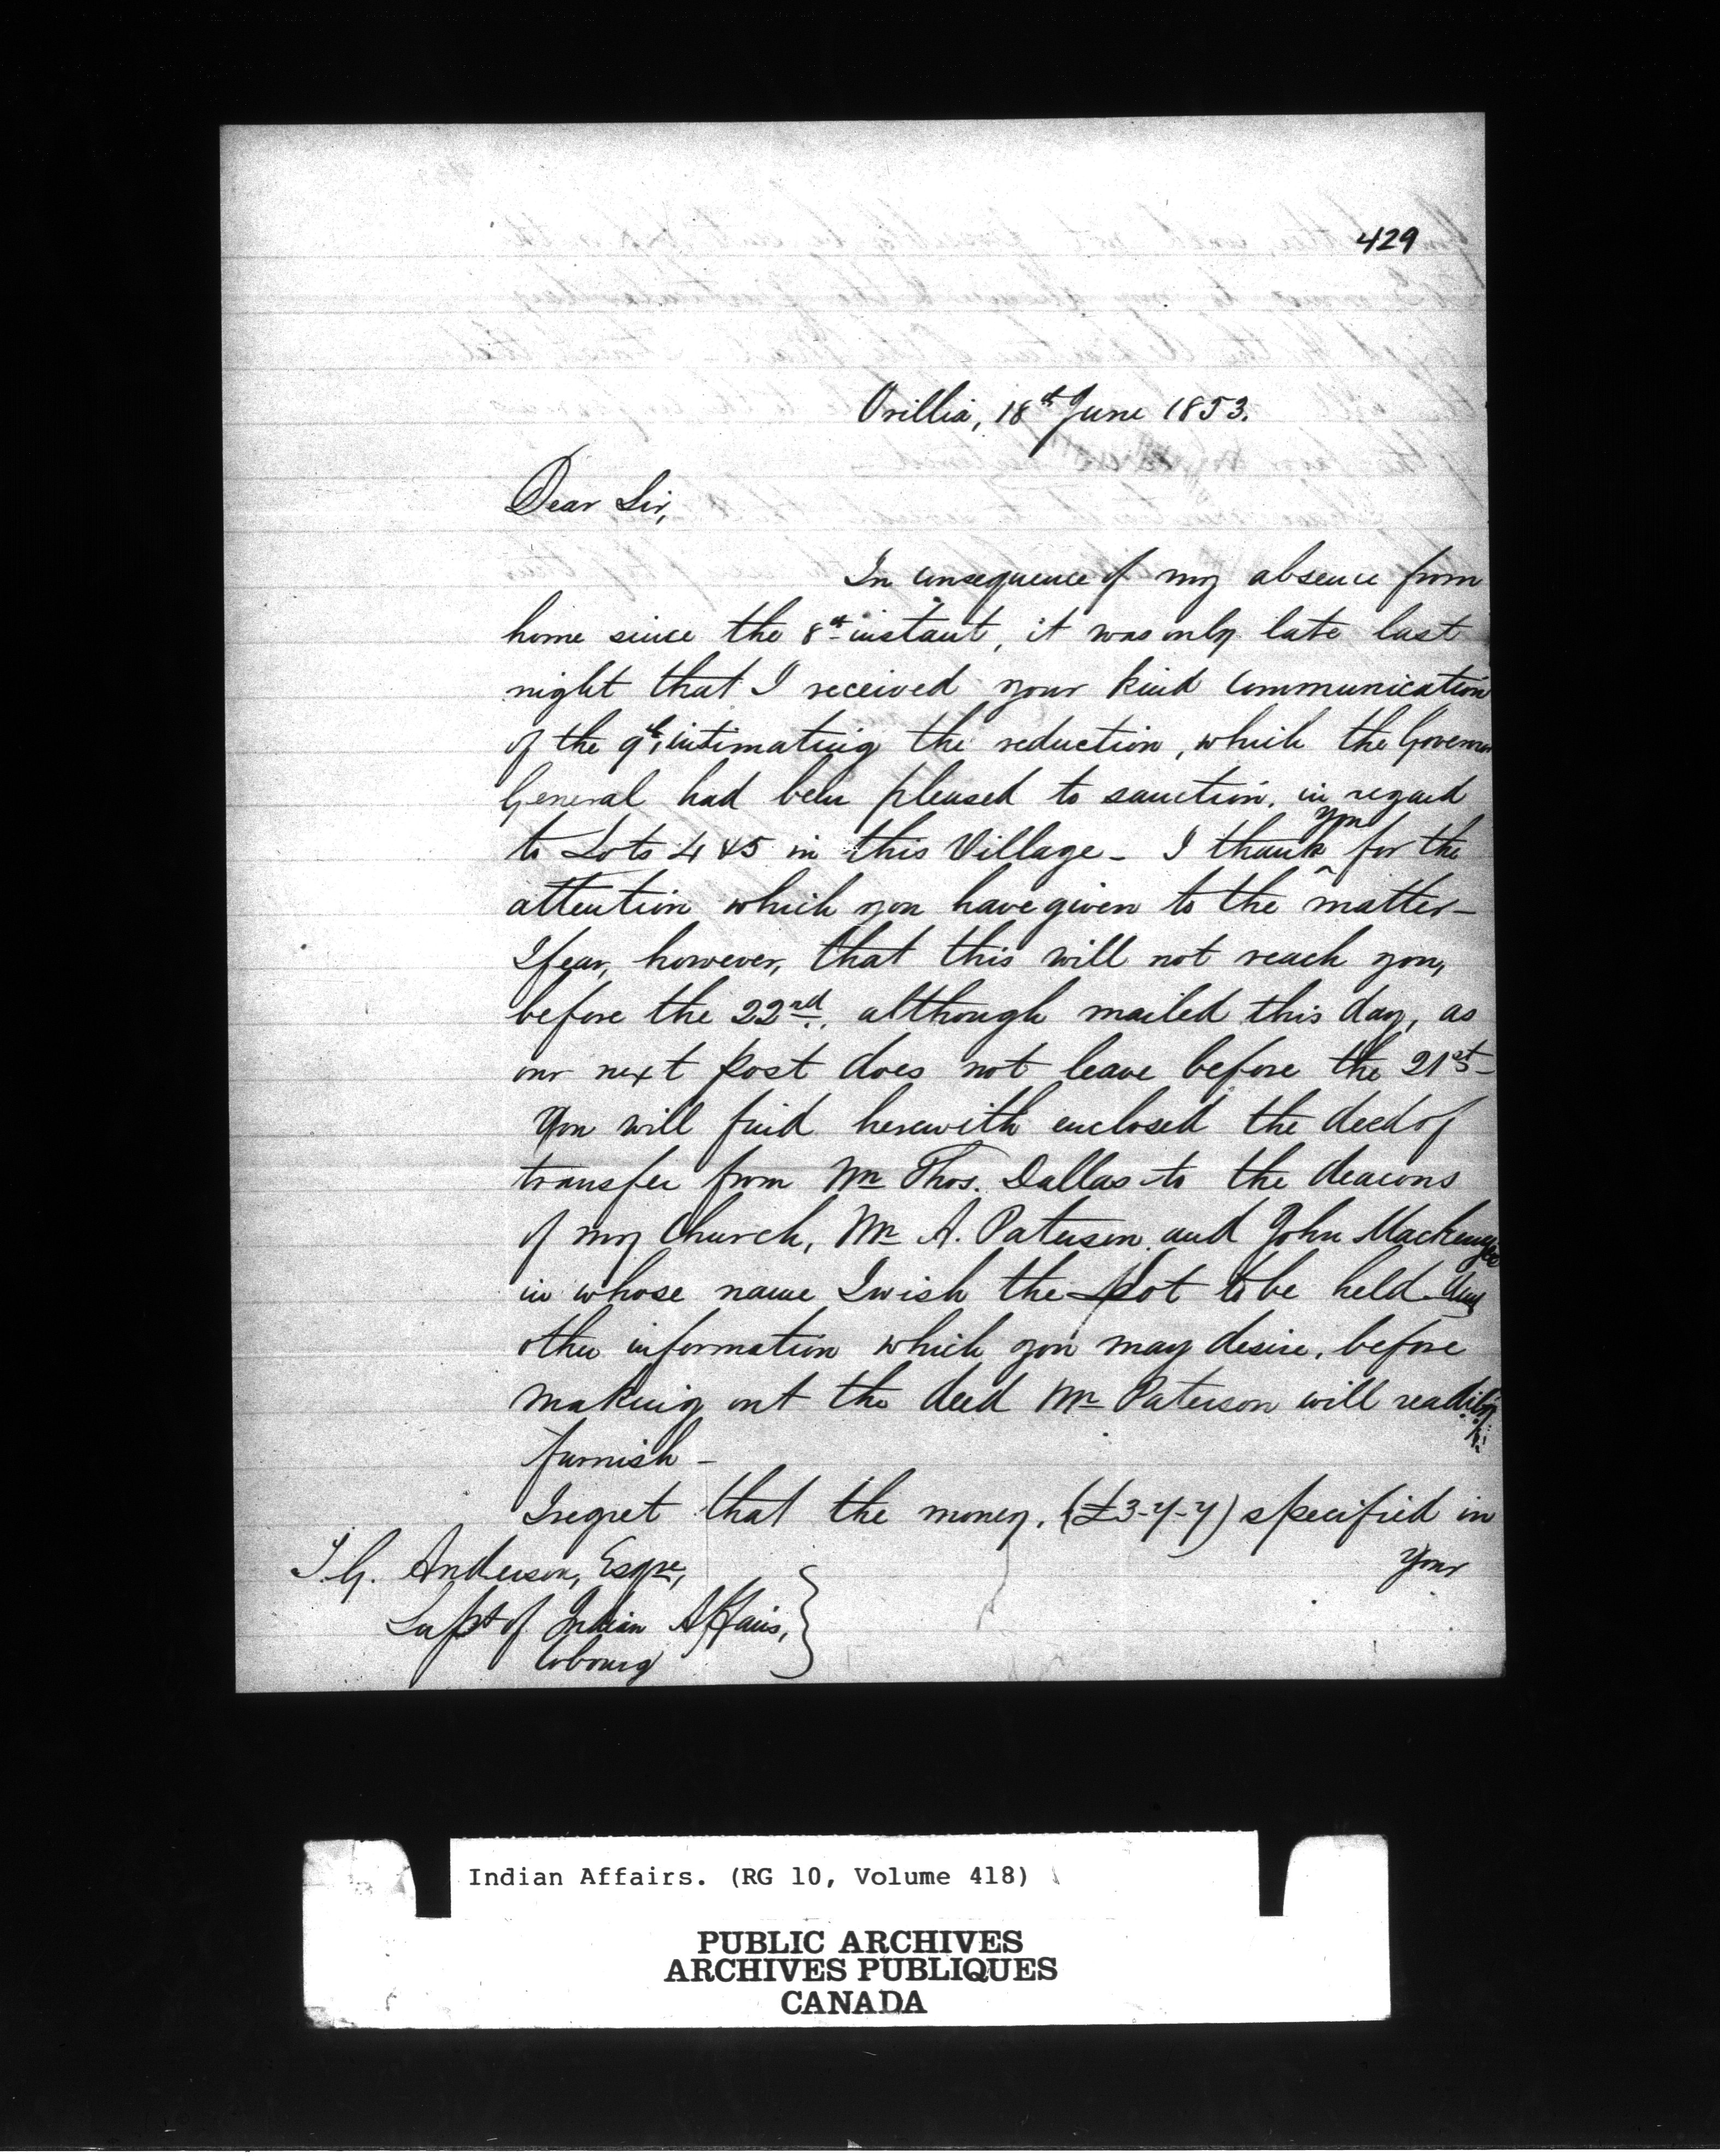 429
Orillia, 18th June 1853.
Dear Sir,
In consequence of my absence from
home since the 8th instant, it was only late last
night that I received your kind communication
of the 9th, intimating the reduction, which the Governor
General had been pleased to sanction, in regard
to Lots 4 & 5 in this Village - I thank you for the
attention which you have given to the matter -
I fear, however, that this will not reach you,
before the 22nd, although mailed this day, as
our next post does not leave before the 21st -
You will find herewith enclosed the deed of
transfer from Mr Thos. Dallas to the deacons
of my Church, Mr A. Paterson and John Mackenzie
in whose name I wish the Lot to be held - Any
other information which you may desire, before
making out the deed Mr Paterson will readily
furnish -
I regret that the money, (£3-7-7) specified in
your
T. G. Anderson, Esqre,
Supt of Indian Affairs,
Cobourg
Indian Affairs. (RG 10, Volume 418)
PUBLIC ARCHIVES
ARCHIVES PUBLIQUES
CANADA